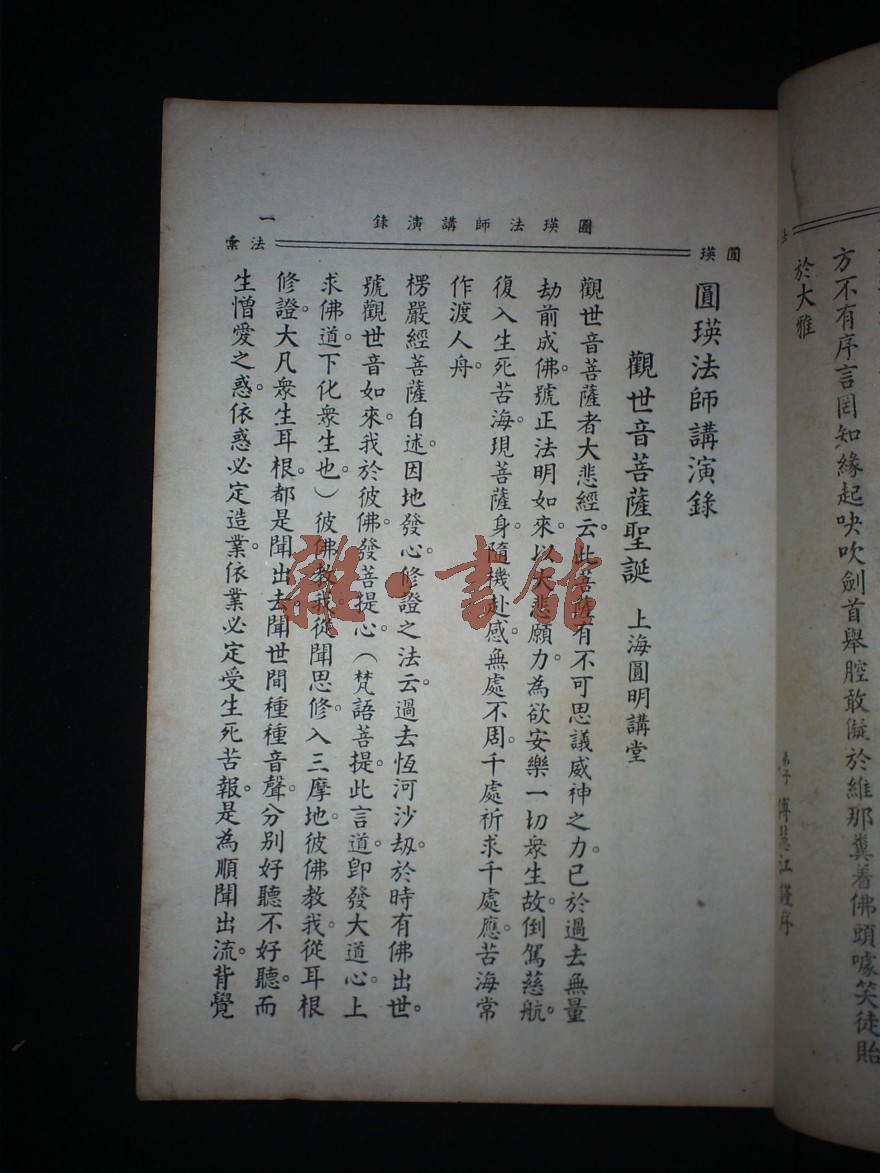 方不有序言罔知緣起吷吹劍首舉腔敢儗於維那糞着佛頭噱笑徒貽
於大雅
弟子
江謹序
圓瑛法師講演錄
一
圓瑛
法彙
圓瑛法師講演錄
觀世音菩薩聖誕 上海圓明講堂
觀世音菩薩者大悲經云。此菩薩有不可思議威神之力。已於過去無量
劫前成佛。號正法明如來。以大悲願力。為欲安樂一切衆生故。倒駕慈航。
復入生死苦海。現菩薩身。隨機赴感。無處不周。千處祈求千處應。苦海常
作渡人舟。
楞嚴經菩薩自述。因地發心。修證之法云。過去恆河沙刼。於時有佛出世。
號觀世音如來。我於彼佛。發菩提心。（梵語菩提。此言道。卽發大道心。上
求佛道。下化衆生也。）彼佛教我。從聞思修。入三摩地。彼佛教我。從耳根
修證。大凡衆生耳根。都是聞出去。聞世間種種音聲。分別好聽不好聽。而
生憎愛之惑。依惑必定造業。依業必定受生死苦報。是為順聞出流。背覺
雜·書館